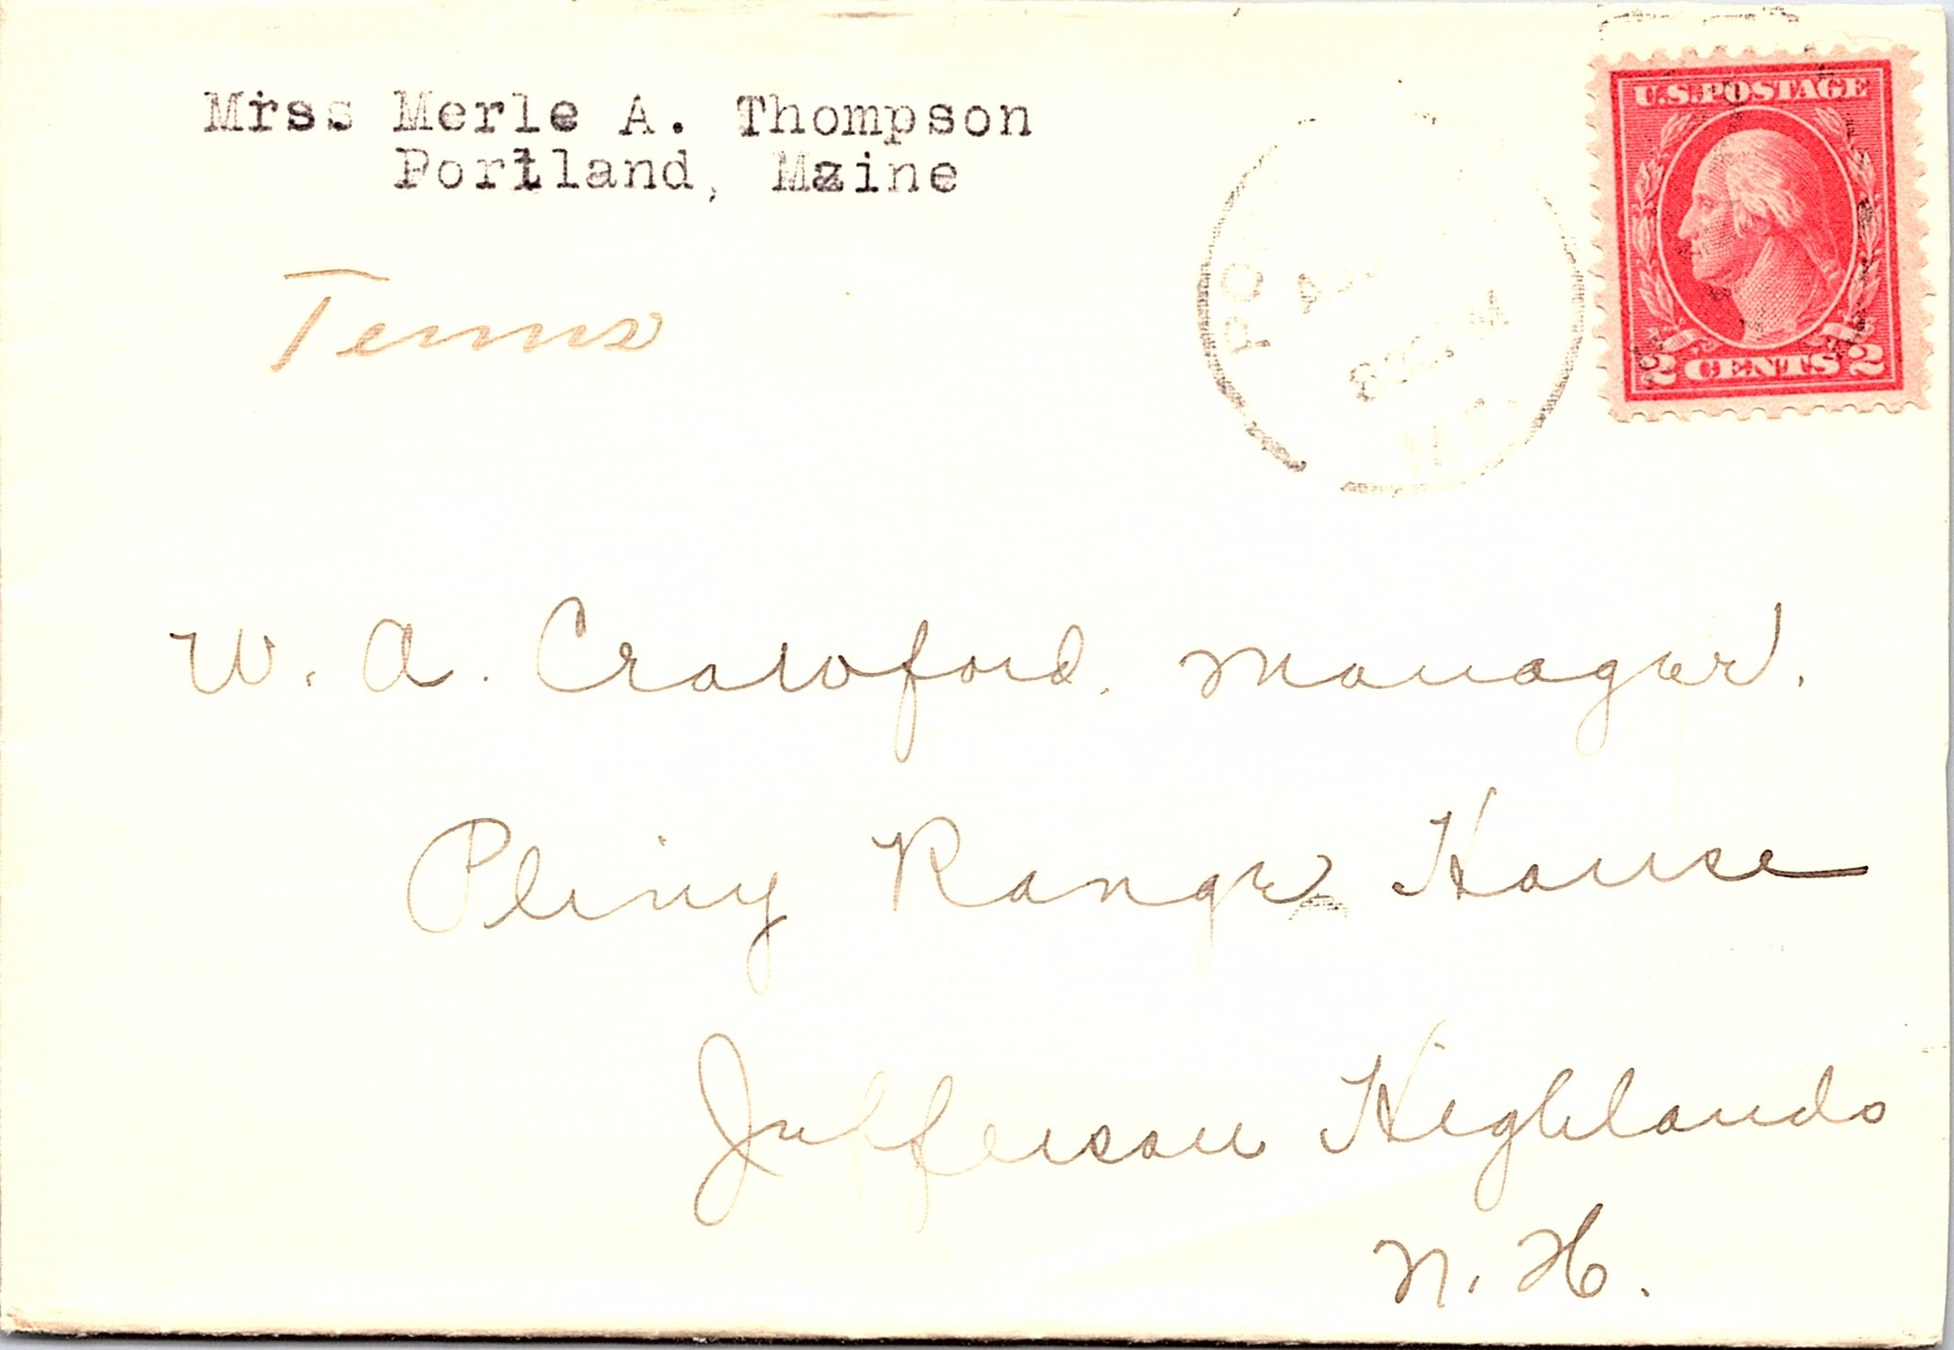 Miss Merle A. Thompson
Portland, Maine
Terms
U.S. POSTAGE
2 CENTS 2
ME.
W. A. Crawford, Manager.
Pliny Range House
Jefferson Highlands
N. H.